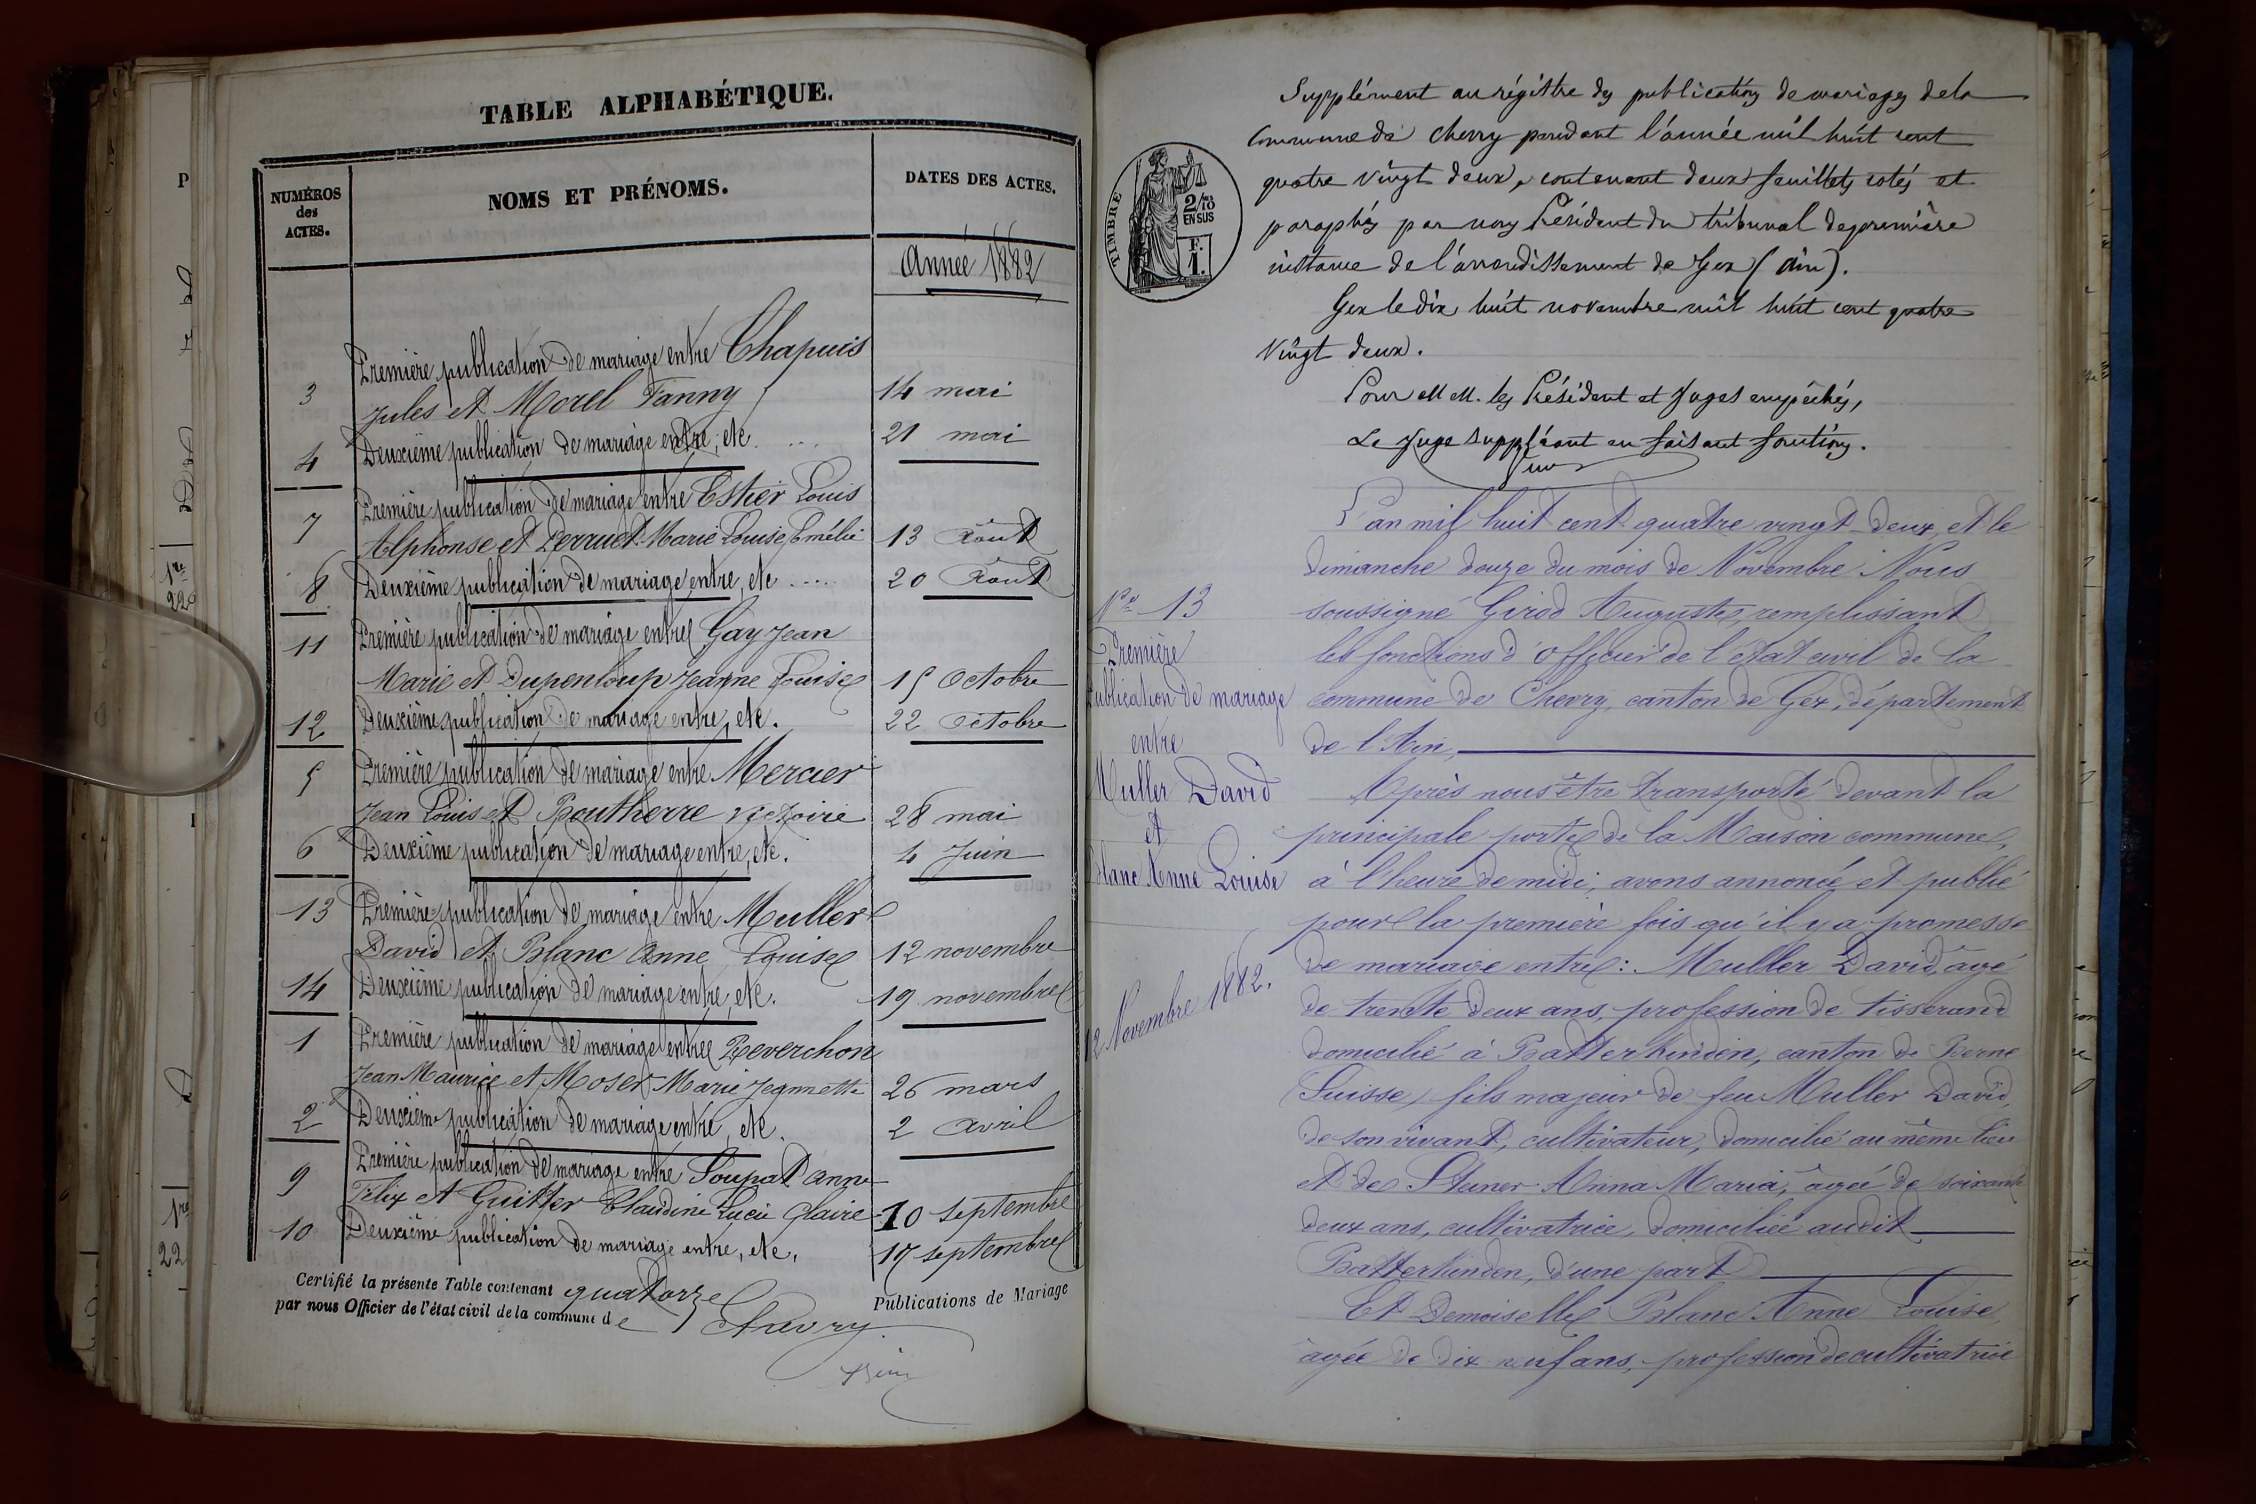 TABLE ALPHABÉTIQUE.
NUMÉROS
des
ACTES.
NOMS ET PRÉNOMS.
DATES DES ACTES.
Année 1882
Première publication de mariage entre Chapuis
3 Jules et Morel Fanny 14 mai
4 Deuxième publication de mariage entre, etc. .... 21 mai
Première publication de mariage entre Esther Louis
7 Alphonse et Perruet Marie Louise Emélie 13 Août
8 Deuxième publication de mariage entre, etc .... 20 Août
11 Première publication de mariage entre Gay Jean
Marie et Dupenloup Jeanne Louise 15 Octobre
12 Deuxième publication de mariage entre, etc. 22 Octobre
5 Première publication de mariage entre Mercier
Jean Louis et Boutherre Victoire 28 mai
6 Deuxième publication de mariage entre, etc. 4 Juin
13 Première publication de mariage entre Muller
David et Blanc Anne Louise 12 novembre
14 Deuxième publication de mariage entre, etc. 19 novembre
1 Première publication de mariage entre Reverchon
Jean Maurice et Moser Marie Jeannette 26 mars
2 Deuxième publication de mariage entre, etc. 2 avril
9 Première publication de mariage entre Soupat Anne
Félix et Guitter Claudine Lucie Claire 10 septembre
10 Deuxième publication de mariage entre, etc. 17 septembre
Certifié la présente Table contenant quatorze Publications de Mariage
par nous Officier de l'état civil de la commune de Chevry.
TIMBRE
2/10
EN SUS
F.
1.
Supplément au régistre des publications de mariages de la
Commune de Chevry pendant l'année mil huit cent
quatre vingt deux, contenant deux feuillets cotés et
paraphés par nous Président du tribunal de première
instance de l'arrondissement de Gex (Ain).
Gex le dix huit novembre mil huit cent quatre
vingt deux.
Pour MM. les Président et Juges empêchés,
Le Juge suppléant en faisant fonctions.
L'an mil huit cent quatre vingt deux, et le
dimanche douze du mois de Novembre Nous
soussigné Girod Auguste, remplissant
les fonctions d'Officier de l'état civil de la
commune de Chevry, canton de Gex, département
de l'Ain,
Après nous être transporté devant la
principale porte de la Maison commune,
à l'heure de midi, avons annoncé et publié
pour la première fois qu'il y a promesse
de mariage entre: Muller David, âgé
de trente deux ans, profession de tisserand
domicilié à Batterkinden, canton de Berne
(Suisse) fils majeur de feu Muller David,
de son vivant, cultivateur, domicilié au même lieu
et de Stuner Anna Maria, âgée de soixante
deux ans, cultivatrice, domiciliée audit
Batterkinden, d'une part
Et Demoiselle Blanc Anne Louise
âgée de dix neuf ans, profession de cultivatrice
N° 13
Première
publication de mariage
entre
Muller David
et
Blanc Anne Louise
12 Novembre 1882.